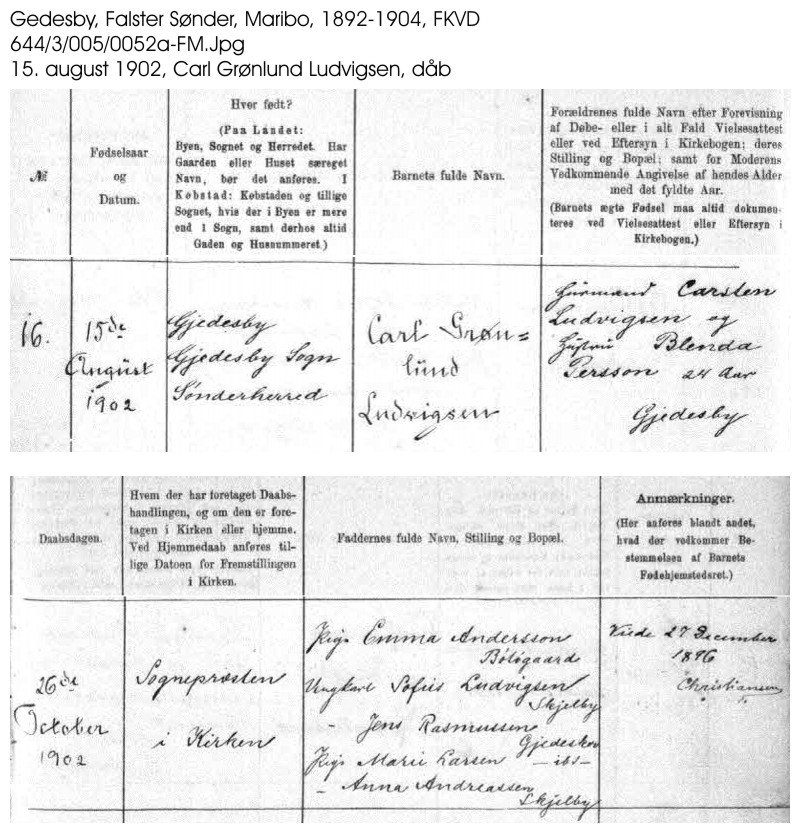 Gedesby, Falster Sønder, Maribo, 1892-1904, FKVD
644/3/005/0052a-FM.Jpg
15. august 1902, Carl Grønlund Ludvigsen, dåb
№
Fødselsaar
og
Datum.
Hvor født?
(Paa Landet:
Byen, Sognet og Herredet. Har
Gaarden eller Huset særeget
Navn, bør det anføres. I
Købstad: Købstaden og tillige
Sognet, hvis der i Byen er mere
end 1 Sogn, samt derhos altid
Gaden og Husnummeret.)
Barnets fulde Navn.
Forældrenes fulde Navn efter Forevisning
af Døbe- eller i alt Fald Vielsesattest
eller ved Eftersyn i Kirkebogen; deres
Stilling og Bopæl; samt for Moderens
Vedkommende Angivelse af hendes Alder
med det fyldte Aar.
(Barnets ægte Fødsel maa altid dokumen-
teres ved Vielsesattest eller Eftersyn i
Kirkebogen.)
16.
15de
August
1902
Gjedesby
Gjedesby Sogn
Sønderherred
Carl Grøn=
lund
Ludvigsen
Husmand Carsten
Ludvigsen og
Hustru Blenda
Persson 24 Aar
Gjedesby
Daabsdagen.
Hvem der har foretaget Daabs-
handlingen, og om den er fore-
tagen i Kirken eller hjemme.
Ved Hjemmedaab anføres til-
lige Datoen for Fremstillingen
i Kirken.
Faddernes fulde Navn, Stilling og Bopæl.
Anmærkninger.
(Her anføres blandt andet,
hvad der vedkommer Be-
stemmelsen af Barnets
Fødehjemstedsret.)
26de
October
1902
Sognepræsten
i Kirken
Pige Emma Andersson
Bøtøgaard
Ungkarl Sofus Ludvigsen
Skjelby
- Jens Rasmussen
Gjedeskov
Pige Marie Larsen - ibd -
- Anna Andreassen
Skjelby
Viede 27 December
1896
Christiansen